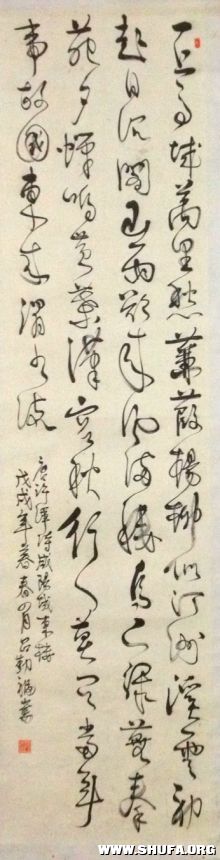 一上高城萬里愁蒹葭楊柳似汀洲溪雲初
起日沉閣山雨欲來風滿樓鳥下綠蕪秦
苑夕蟬鳴黄葉漢宮秋行人莫問當年
事故國東來渭水流
唐許渾詩咸陽城東樓
戊戌年暮春月
WWW.SHUFA.ORG